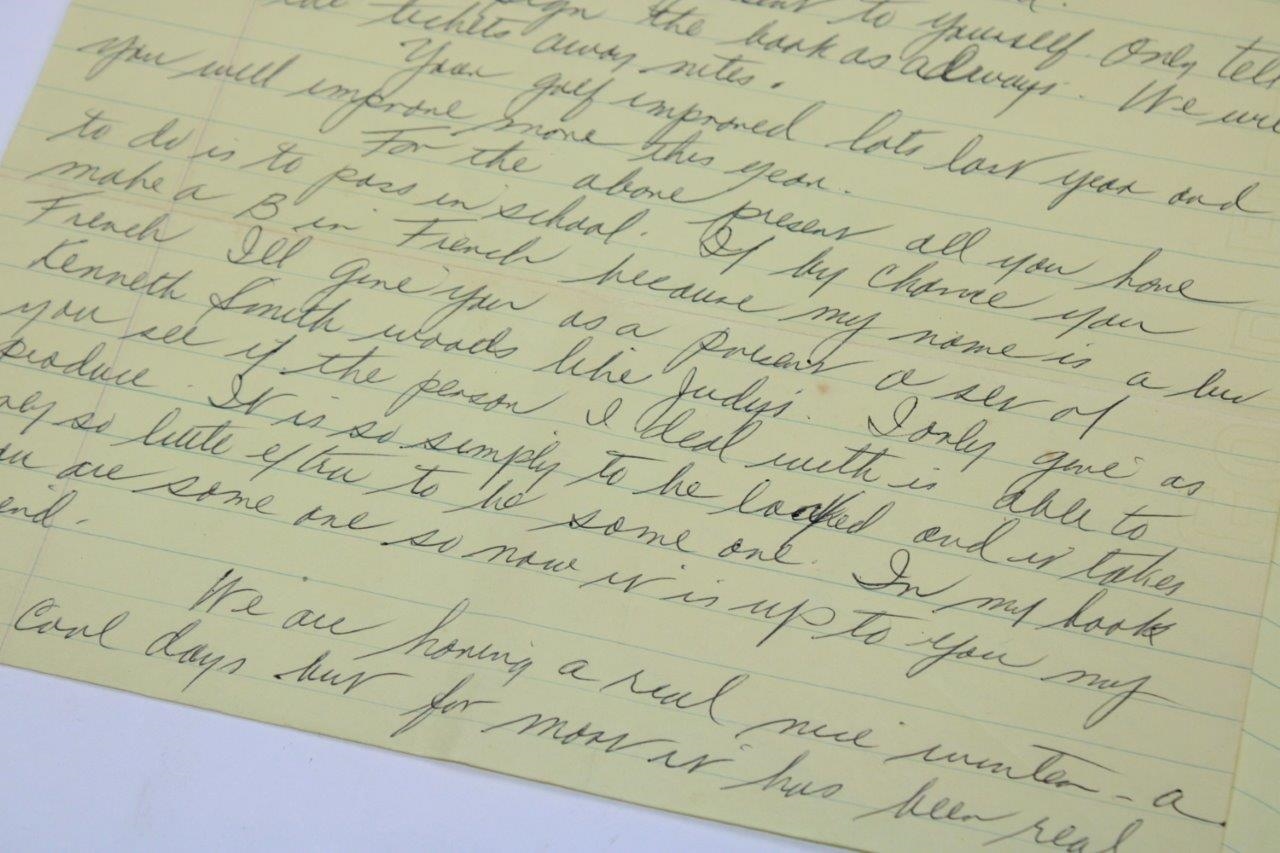 to yourself. Only tell
sign the book as always. We will
tickets away nites.
Your golf improved lots last year and
you will improve more this year.
For the above present all you have
to do is to pass in school. If by chance you
make a B in French because my name is a
French I'll give you as a present a set of
Kenneth Smith woods like Judys. I only give as
you see if the person I deal with is able to
produce. It is so simply to be looked and it takes
so little extra to be some one. In my book
are some one so now it is up to you my
end.
We are having a real nice winter - a
cool days but for most it has been real